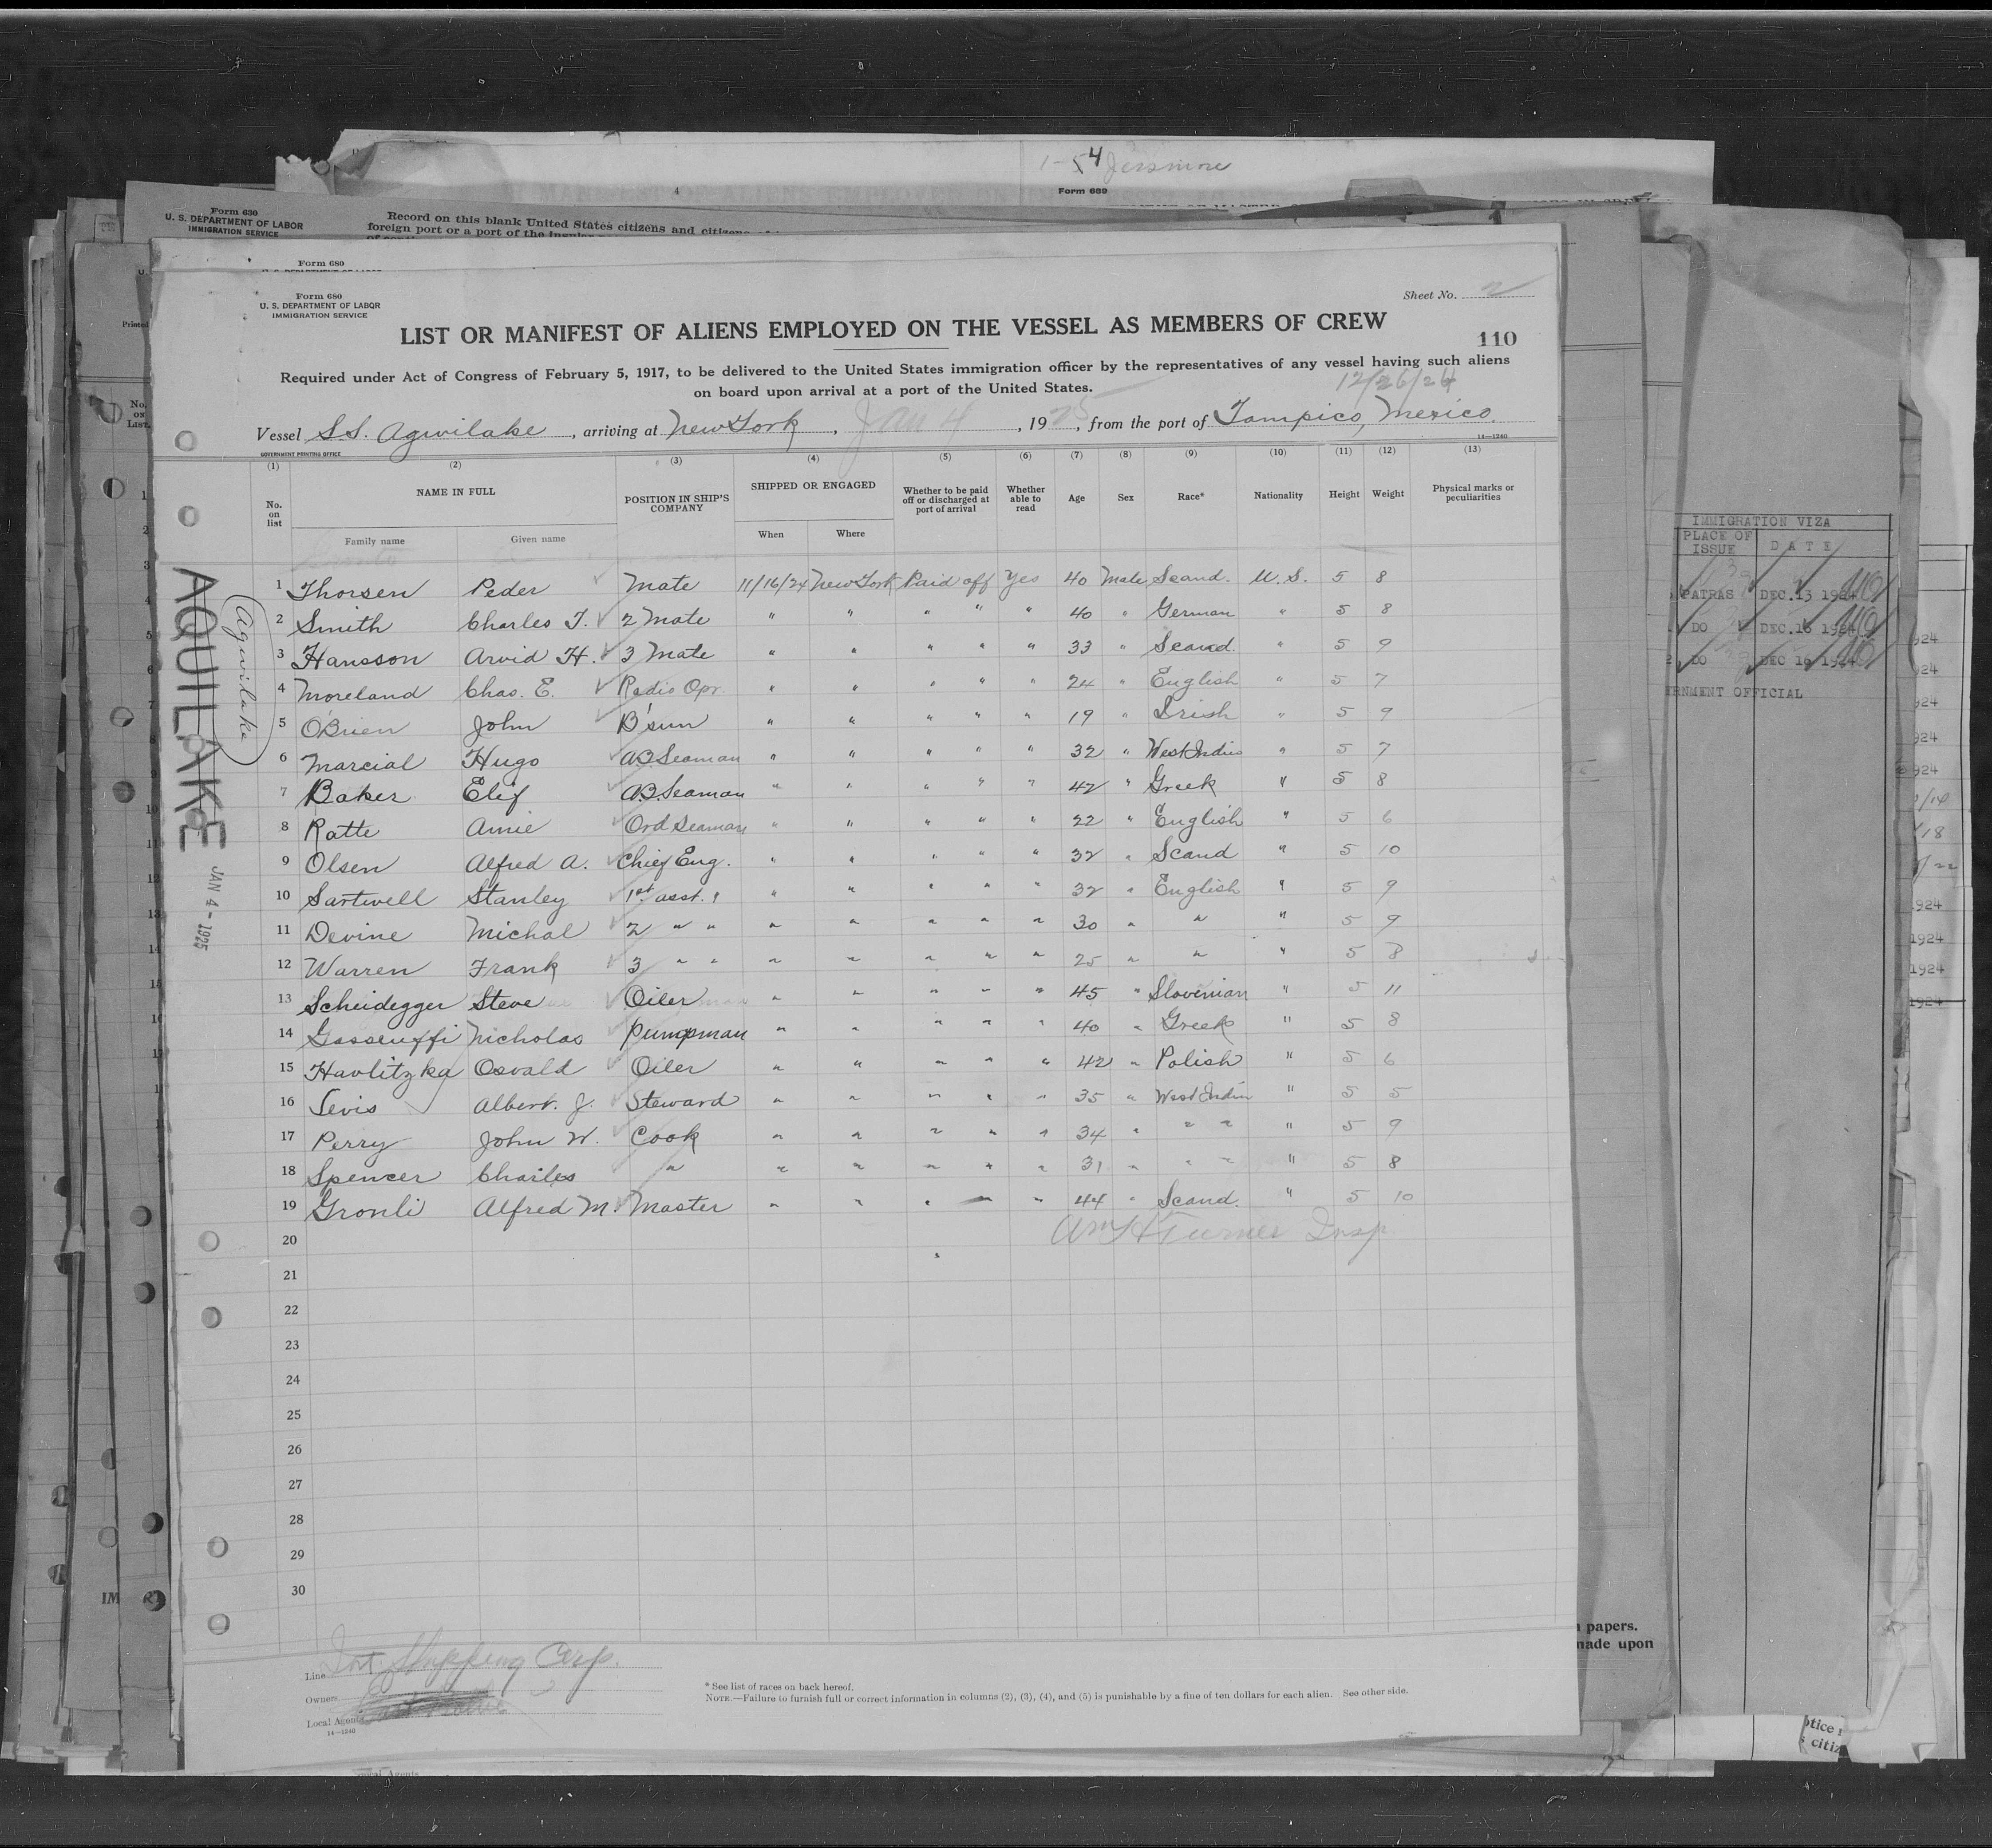 1-54 Jersmore
4
Form 689
Form 630
U. S. DEPARTMENT OF LABOR
IMMIGRATION SERVICE
Record on this blank United States citizens and citizens
foreign port or a port of the insular
Form 680
Form 680
U. S. DEPARTMENT OF LABOR
IMMIGRATION SERVICE
Sheet No. 2
LIST OR MANIFEST OF ALIENS EMPLOYED ON THE VESSEL AS MEMBERS OF CREW
110
Required under Act of Congress of February 5, 1917, to be delivered to the United States immigration officer by the representatives of any vessel having such aliens
on board upon arrival at a port of the United States.
12/26/24
Vessel S.S. Agwilake, arriving at New York, Jan 4, 1925, from the port of Tampico, Mexico.
GOVERNMENT PRINTING OFFICE
14—1240
(1) (2) (3) (4) (5) (6) (7) (8) (9) (10) (11) (12) (13)
No. on list NAME IN FULL POSITION IN SHIP'S COMPANY SHIPPED OR ENGAGED Whether to be paid off or discharged at port of arrival Whether able to read Age Sex Race* Nationality Height Weight Physical marks or peculiarities
Family name Given name When Where
1 Thorsen Peder Mate 11/16/24 New York Paid off Yes 40 Male Scand. U.S. 5 8
2 Smith Charles T. 2 Mate " " " " " 40 " German " 5 8
3 Hansson Arvid H. 3 Mate " " " " " 33 " Scand. " 5 9
4 Moreland Chas. E. Radio Opr. " " " " " 24 " English " 5 7
5 O'Brien John B'sun " " " " " 19 " Irish " 5 9
6 Marcial Hugo A.B. Seaman " " " " " 32 " West Indies " 5 7
7 Baker Elif A.B. Seaman " " " " " 42 " Greek " 5 8
8 Ratte Amie Ord Seaman " " " " " 22 " English " 5 6
9 Olsen Alfred A. Chief Eng. " " " " " 32 " Scand " 5 10
10 Sartwell Stanley 1st asst. " " " " " " 32 " English " 5 9
11 Devine Michal 2 " " " " " " " 30 " " " 5 9
12 Warren Frank 3 " " " " " " " 25 " " " 5 8
13 Scheidegger Steve Oiler " " " " " 45 " Slovenian " 5 11
14 Gasseuffi Nicholas Pumpman " " " " " 40 " Greek " 5 8
15 Havlitzka Osvald Oiler " " " " " 42 " Polish " 5 6
16 Levis Albert. J. Steward " " " " " 35 " West Indin " 5 5
17 Perry John W. Cook " " " " " 34 " " " " 5 9
18 Spencer Charles " " " " " " 31 " " " " 5 8
19 Gronli Alfred M. Master " " " " " 44 " Scand. " 5 10
20 Wm H Turner Insp
21
22
23
24
25
26
27
28
29
30
AQUILAKE
(Agwilake)
JAN 4 - 1925
Line Int. Shipping Corp.
Owners
Local Agents
14—1240
* See list of races on back hereof.
NOTE.—Failure to furnish full or correct information in columns (2), (3), (4), and (5) is punishable by a fine of ten dollars for each alien. See other side.
IMMIGRATION VIZA
PLACE OF ISSUE DATE
PATRAS DEC. 13 1924
DO DEC. 16 1924
DO DEC 16 1924
ERNMENT OFFICIAL
papers.
made upon